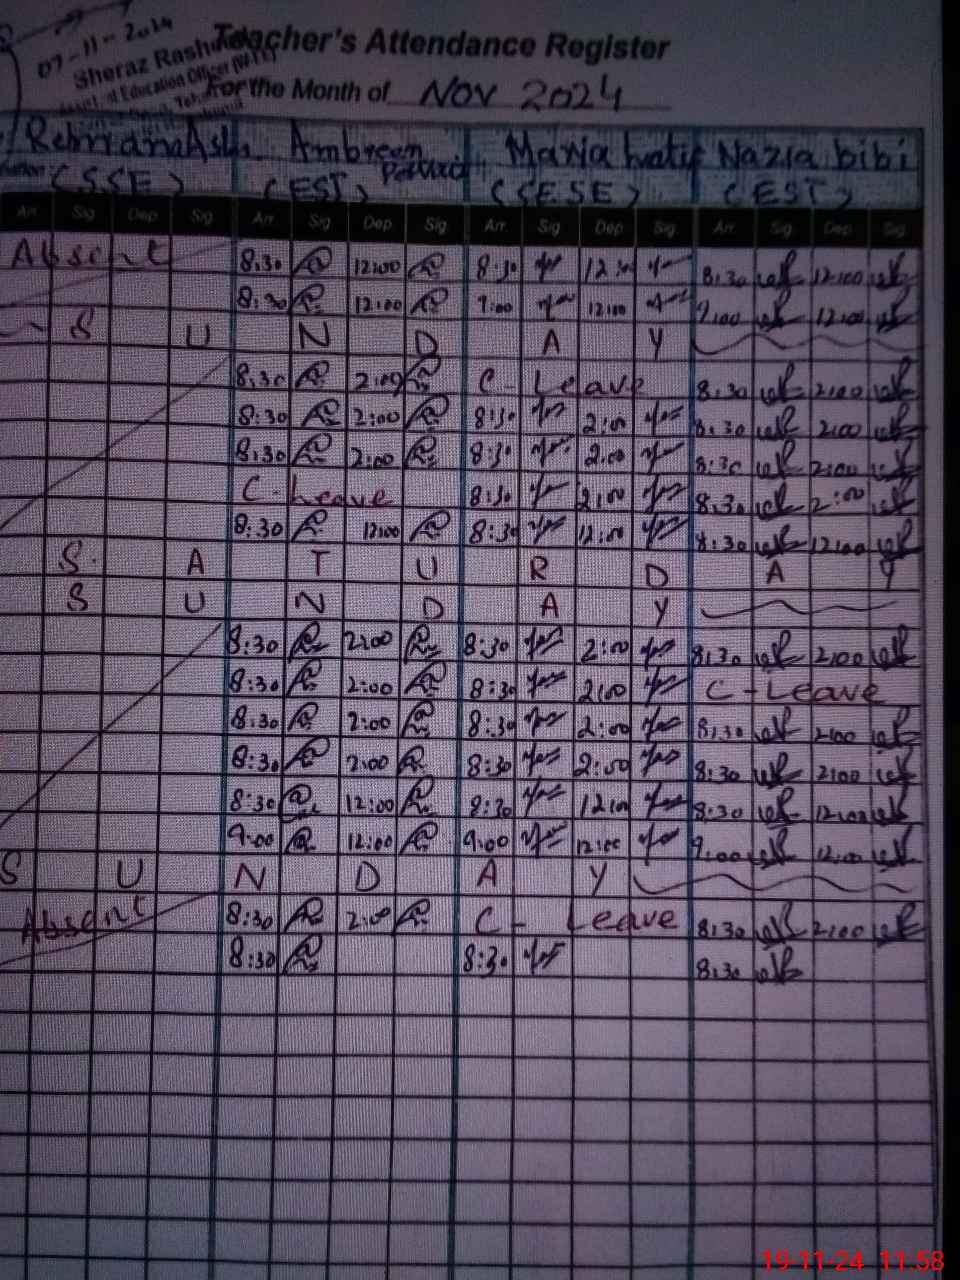 07-11-2024
Sheraz Rash
Teacher's Attendance Register
Asstt. of Education Officer
For the Month of NOV 2024
Ambreen Maria Nazia bibi
(SSE) (EST) (SESE) (EST)
Arr. Sig Dep Sig Arr. Sig Dep Sig Arr. Sig Dep Sig Arr. Sig Dep Sig
Absent 8:30 12:00 8:30 12:00 8:30 12:00
8:30 12:00 9:00 12:00 9:00 12:00
S U N D A Y
8:30 2:00 C-Leave 8:30 2:00
8:30 2:00 8:30 2:00 8:30 2:00
8:30 2:00 8:30 2:00 8:30 2:00
C-Leave 8:30 2:00 8:30 2:00
8:30 12:00 8:30 12:00 8:30 12:00
S A T U R D A Y
S U N D A Y
8:30 2:00 8:30 2:00 8:30 2:00
8:30 2:00 8:30 2:00 C-Leave
8:30 2:00 8:30 2:00 8:30 2:00
8:30 2:00 8:30 2:00 8:30 2:00
8:30 12:00 8:30 12:00 8:30 12:00
9:00 12:00 9:00 12:00 9:00 12:00
S U N D A Y
Absent 8:30 2:00 C-Leave 8:30 2:00
8:30 8:30 8:30
19-11-24 11:58